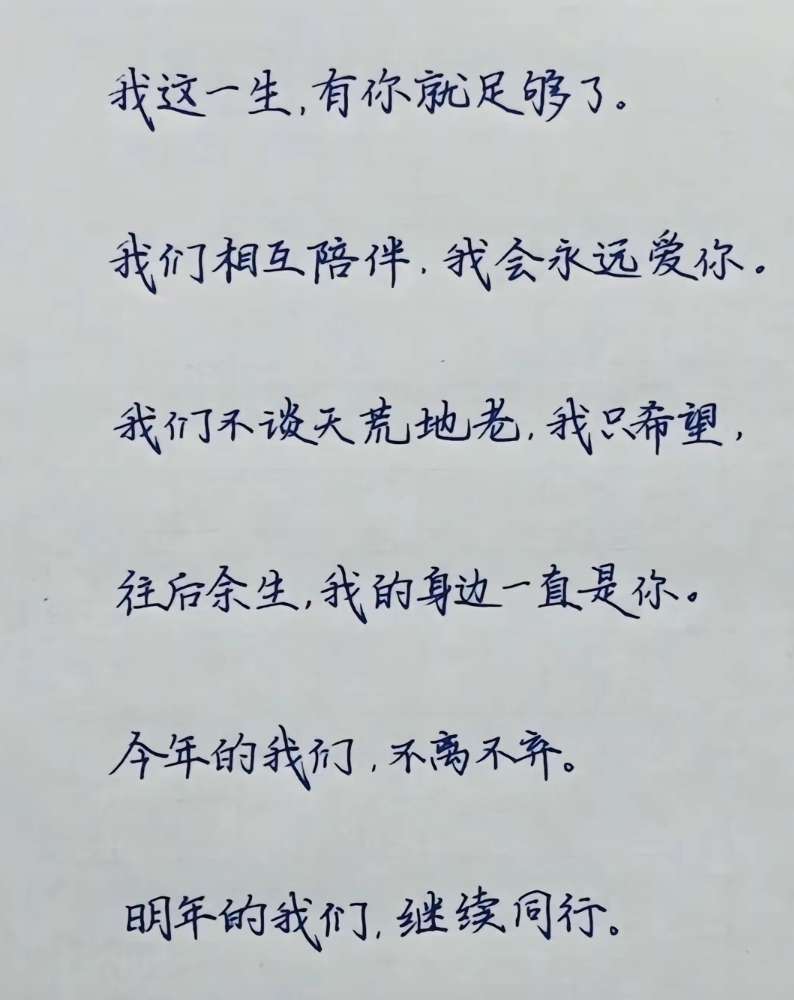 我这一生,有你就足够了。
我们相互陪伴,我会永远爱你。
我们不谈天荒地老,我只希望,
往后余生,我的身边一直是你。
今年的我们,不离不弃。
明年的我们,继续同行。